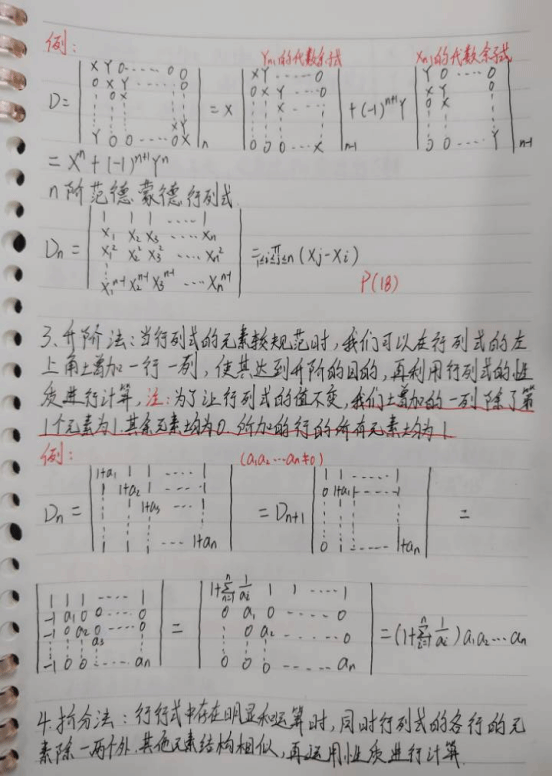 例:
Yn1的代数余子式 Xn1的代数余子式
D= | X Y 0 ---- 0 0 | 0 X Y ---- 0 0 | 0 0 X | Y 0 0 ---- 0 X |n = X | X Y ---- 0 | 0 X Y ---- 0 | X | 0 0 ---- X |n-1 + (-1)^{n+1} Y | Y 0 ---- 0 | X Y 0 | 0 X | 0 0 ---- Y |n-1
= X^n + (-1)^{n+1} Y^n
n阶范德蒙德行列式
Dn = | 1 1 1 ---- 1 | X1 X2 X3 ---- Xn | X1^2 X2^2 X3^2 ---- Xn^2 | X1^{n-1} X2^{n-1} X3^{n-1} Xn^{n-1} | = ∏ 1≤i≤j≤n (Xj - Xi)
P(18)
3、升阶法:当行列式的元素较规范时,我们可以在行列式的左
上角增加一行一列,使其达到升阶的目的,再利用行列式的性
质进行计算,注:为了让行列式的值不变,我们增加的一列除了第
1个元素为1,其余元素均为0,所加的行的所有元素均为1
例: (a1a2…an≠0)
Dn = | 1+a1 1 1 ---- 1 | 1 1+a2 1 ---- 1 | 1 1 1+a3 ---- 1 | 1 1 1 ---- 1+an | = Dn+1 | 1 1 1 ---- 1 | 0 1+a1 1 ---- 1 | 0 1 ---- 1+an | =
| 1 1 1 ---- 1 | -1 a1 0 0 ---- 0 | -1 0 a2 0 ---- 0 | a3 | -1 0 0 ---- an | = | 1+∑ n=1 n 1/ai 1 1 ---- 1 | 0 a1 0 ---- 0 | 0 0 a2 ---- 0 | 0 0 0 ---- an | = (1+∑ i=1 n 1/ai) a1a2…an
4.拆分法:行行式中存在明显和运算时,同时行列式的各行的元
素除一两个外,其他元素结构相似,再运用性质进行计算.